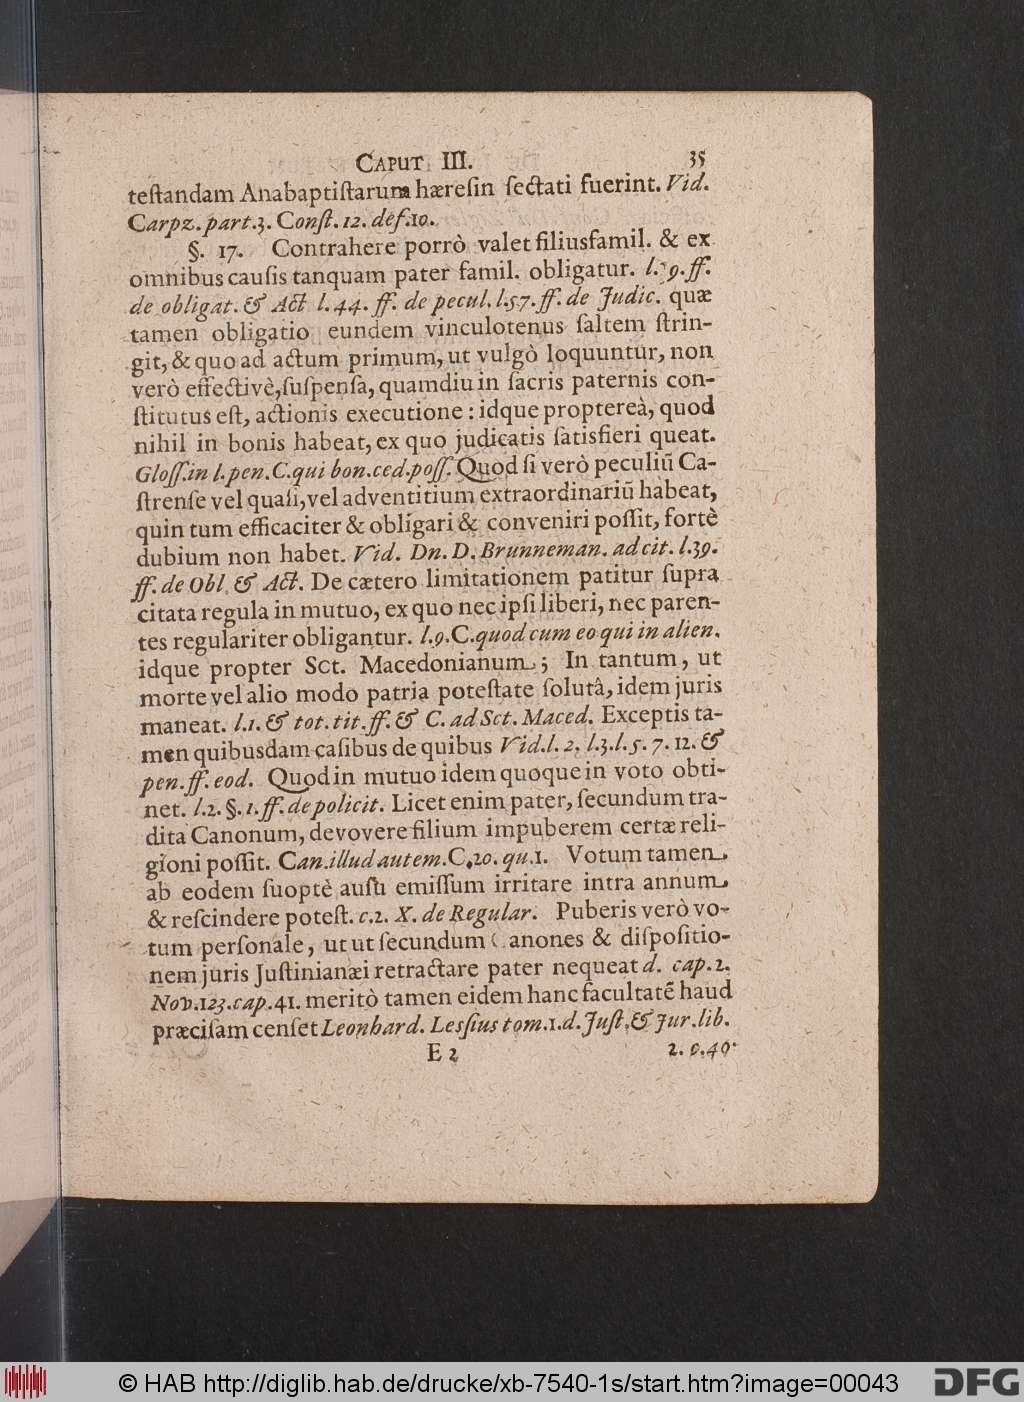 CAPUT III. 35
teſtandam Anabaptiſtarum hæreſin ſectati fuerint. Vid.
Carpz. part. 3. Conſt. 12. def. 10.
§. 17. Contrahere porrò valet filiusfamil. & ex
omnibus cauſis tanquam pater famil. obligatur. l. 39. ff.
de obligat. & Act l. 44. ff. de pecul. l. 57. ff. de Judic. quæ
tamen obligatio eundem vinculotenus ſaltem ſtrin-
git, & quo ad actum primum, ut vulgò loquuntur, non
verò effectivè, ſuſpenſa, quamdiu in ſacris paternis con-
ſtitutus eſt, actionis executione: idque proptereà, quod
nihil in bonis habeat, ex quo judicatis ſatisfieri queat.
Gloſſ. in l. pen. C. qui bon. ced. poſſ. Quod ſi verò peculiũ Ca-
ſtrenſe vel quaſi, vel adventitium extraordinariũ habeat,
quin tum efficaciter & obligari & conveniri poſſit, fortè
dubium non habet. Vid. Dn. D. Brunneman. ad cit. l. 39.
ff. de Obl. & Act. De cætero limitationem patitur ſupra
citata regula in mutuo, ex quo nec ipſi liberi, nec paren-
tes regulariter obligantur. l. 9. C. quod cum eo qui in alien.
idque propter Sct. Macedonianum; In tantum, ut
morte vel alio modo patria poteſtate ſolutâ, idem juris
maneat. l. 1. & tot. tit. ff. & C. ad Sct. Maced. Exceptis ta-
men quibusdam caſibus de quibus Vid. l. 2. l. 3. l. 5. 7. 12. &
pen. ff. eod. Quod in mutuo idem quoque in voto obti-
net. l. 2. §. 1. ff. de policit. Licet enim pater, ſecundum tra-
dita Canonum, devovere filium impuberem certæ reli-
gioni poſſit. Can. illud autem. C. 20. qu. 1. Votum tamen
ab eodem ſuoptè auſu emiſſum irritare intra annum
& reſcindere poteſt. c. 2. X. de Regular. Puberis verò vo-
tum perſonale, ut ut ſecundum Canones & diſpoſitio-
nem juris Juſtinianæi retractare pater nequeat d. cap. 2.
Nov. 123. cap. 41. meritò tamen eidem hanc facultatẽ haud
præciſam cenſet Leonhard. Leſſius tom. 1. d. Juſt. & Jur. lib.
E 2 2. c. 40.
© HAB http://diglib.hab.de/drucke/xb-7540-1s/start.htm?image=00043
DFG